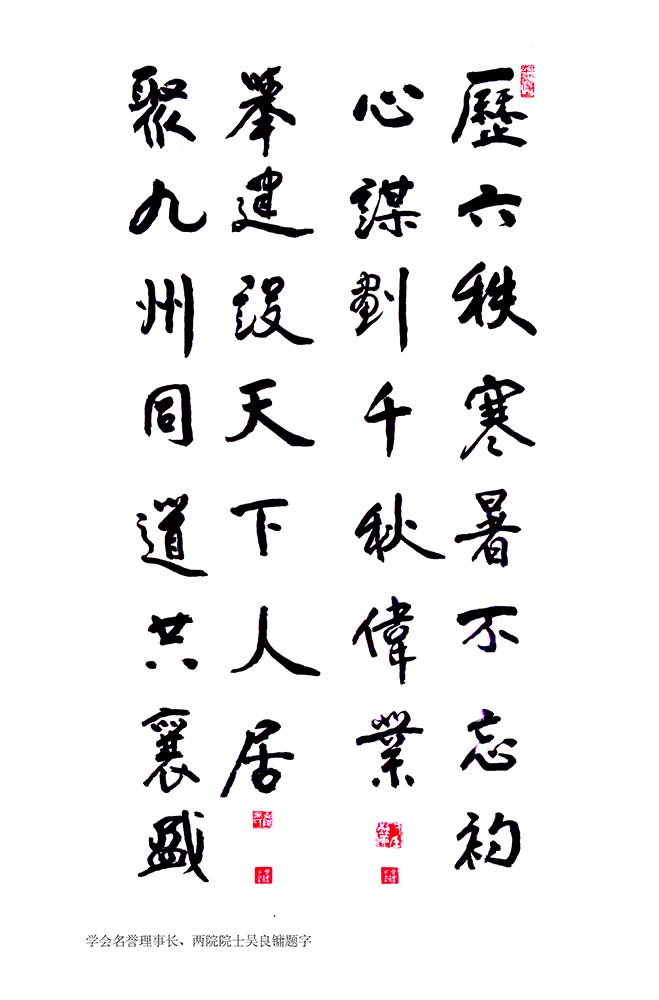 歷六秩寒暑不忘初
心謀劃千秋偉業
聚九州同道共襄盛
舉建設天下人居
学会名誉理事长、两院院士吴良镛题字